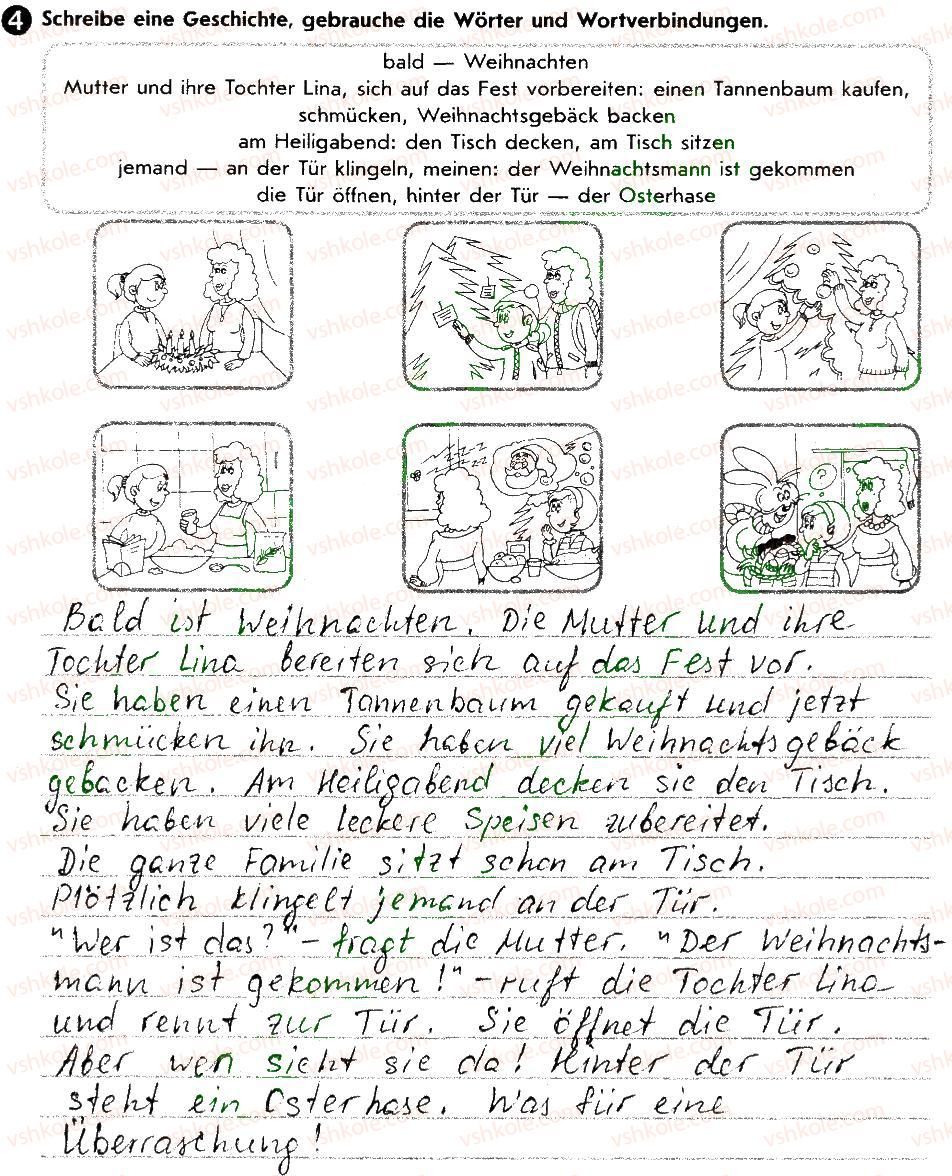 4 Schreibe eine Geschichte, gebrauche die Wörter und Wortverbindungen.
bald — Weihnachten
Mutter und ihre Tochter Lina, sich auf das Fest vorbereiten: einen Tannenbaum kaufen,
schmücken, Weihnachtsgebäck backen
am Heiligabend: den Tisch decken, am Tisch sitzen
jemand — an der Tür klingeln, meinen: der Weihnachtsmann ist gekommen
die Tür öffnen, hinter der Tür — der Osterhase
Bald ist Weihnachten. Die Mutter und ihre
Tochter Lina bereiten sich auf das Fest vor.
Sie haben einen Tannenbaum gekauft und jetzt
schmücken ihn. Sie haben viel Weihnachtsgebäck
gebacken. Am Heiligabend decken sie den Tisch.
Sie haben viele leckere Speisen zubereitet.
Die ganze Familie sitzt schon am Tisch.
Plötzlich klingelt jemand an der Tür.
"Wer ist das?" – fragt die Mutter. "Der Weihnachts-
mann ist gekommen!" – ruft die Tochter Lina
und rennt zur Tür. Sie öffnet die Tür.
Aber wen sieht sie da! Hinter der Tür
steht ein Osterhase. Was für eine
Überraschung!